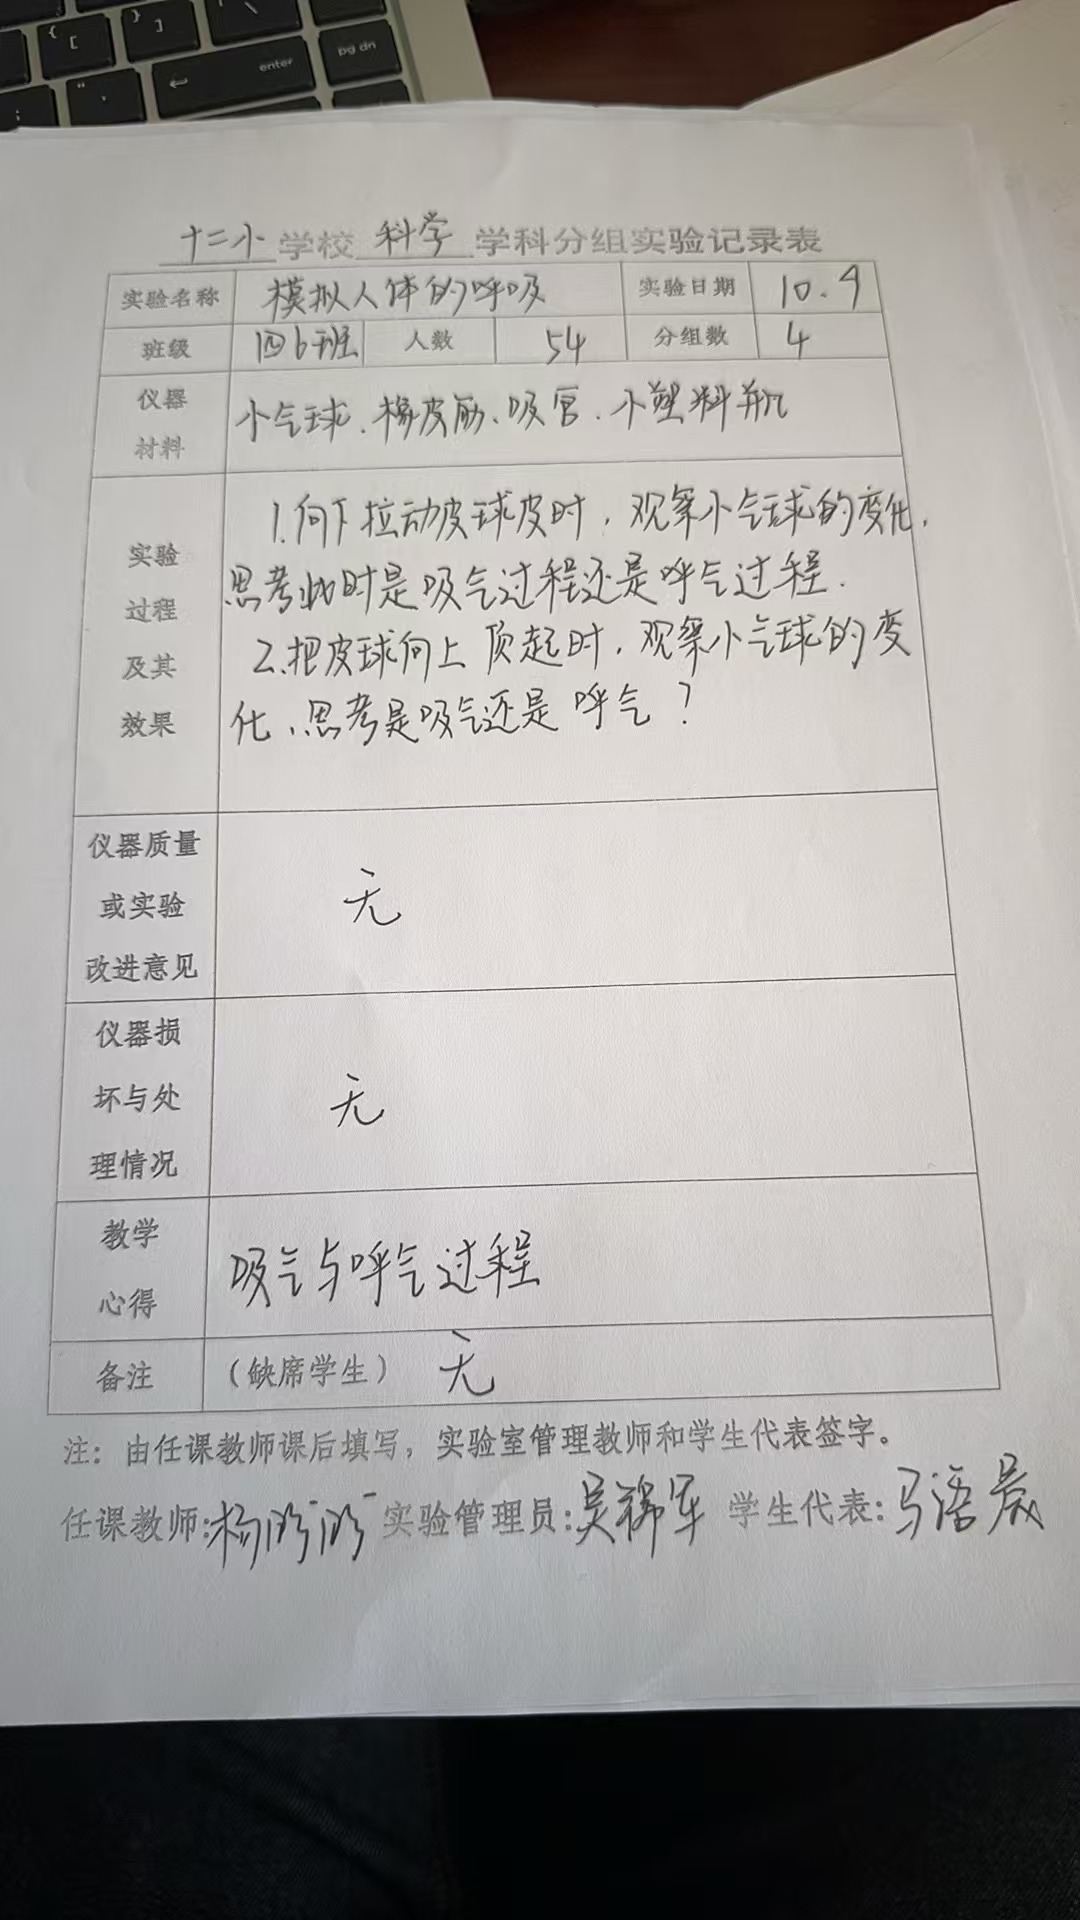 { [
} ]
pg dn
enter
十二小学校 科学 学科分组实验记录表
实验名称 模拟人体的呼吸 实验日期 10.9
班级 四6班 人数 54 分组数 4
仪器
材料
小气球、橡皮筋、吸管、小塑料瓶
实验
过程
及其
效果
1.向下拉动皮球皮时,观察小气球的变化,
思考此时是吸气过程还是呼气过程.
2.把皮球向上顶起时,观察小气球的变
化、思考是吸气还是呼气?
仪器质量
或实验
改进意见
无
仪器损
坏与处
理情况
无
教学
心得
吸气与呼气过程
备注 (缺席学生) 无
注:由任课教师课后填写,实验室管理教师和学生代表签字。
任课教师:杨 实验管理员:吴 军 学生代表:马语晨